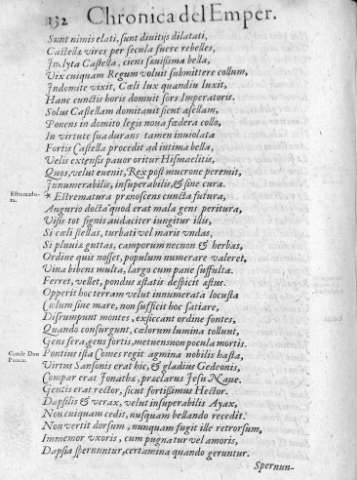 132 Chronica del Emper.
Sunt nimis elati, sunt diuitijs dilatati,
Castellæ vires per secula fuere rebelles,
Inclyta Castella, ciens sæuissima bella,
Vix cuiquam Regum voluit submittere collum,
Indomite vixit, Cœli lux quandiu luxit,
Hanc cunctis horis domuit sors Imperatoris.
Solus Castellam domitauit sicut asellam,
Ponens in domito legis noua fœdera collo,
In virtute sua durans tamen inuiolata
Fortis Castella procedit ad intima bella,
Velis extensis pauor oritur Hismaelitis,
Quos, velut euenit, Rex post mucrone peremit,
Innumerabilis, insuperabilis, & sine cura.
Estremadura. * Estrematura prænoscens cuncta futura,
Augurio docta quod erat mala gens peritura,
Visis tot signis audaciter iungitur illis,
Si cœli stellas, turbati vel maris vndas,
Si pluuiæ guttas, camporum necnon & herbas,
Ordine quis nosset, populum numerare valeret,
Vina bibens multa, largo cum pane suffulta.
Ferret, vellet, pondus æstatis despicit æstus.
Opperit hoc terram velut innumerata locusta
Cœlum siue mare, non sufficit hoc satiare,
Disrumpunt montes, exsiccant ordine fontes,
Quando consurgunt, cœlorum lumina tollunt,
Gens fera, gens fortis, metuens non pocula mortis.
Conde Don Poncio. Pontius ista Comes regit agmina nobilis hasta,
Virtus Sansonis erat hic, & gladius Gedeonis,
Compar erat Ionathæ, præclarus Iesu Naue.
Gentis erat rector, sicut fortissimus Hector.
Dapsilis & verax, velut insuperabilis Ayax,
Non cuiquam cedit, nusquam bellando recedit.
Non vertit dorsum, nunquam fugit ille retrorsum,
Immemor vxoris, cum pugnatur vel amoris,
Dapsia spernuntur, certamina quando geruntur.
Spernun-